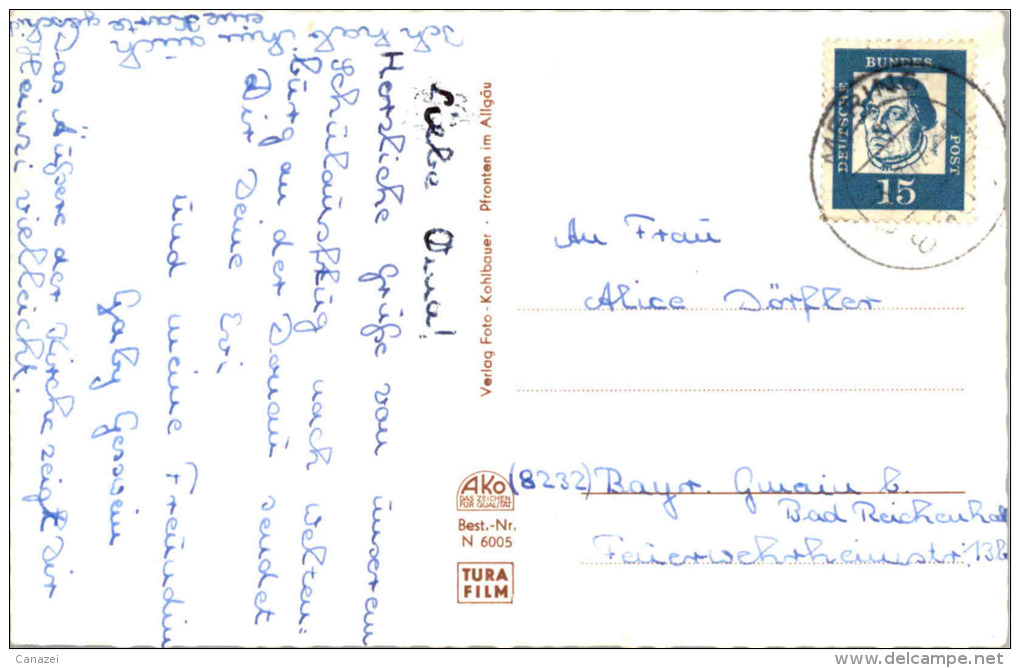 Liebe Oma!
Herzliche Grüße von unserem
Schulausflug nach Welten-
burg an der Donau sendet
Dir Deine Evi
und meine Freundin
Gaby Gesswein
Das Äußere der Kirche zeigt Dir
Heinzi vielleicht.
Ich hab' ihm auch
eine Karte geschickt
Verlag Foto-Kohlbauer · Pfronten im Allgäu
AKo
DAS ZEICHEN
FÜR QUALITÄT
Best.-Nr.
N 6005
TURA
FILM
DEUTSCHE
BUNDES
POST
15
MERING
An Frau
Alice Dörfler
(8232) Bayr. Gmain b.
Bad Reichenhall
Feuerwehrheimstr. 13b
Canazei
www.delcampe.net